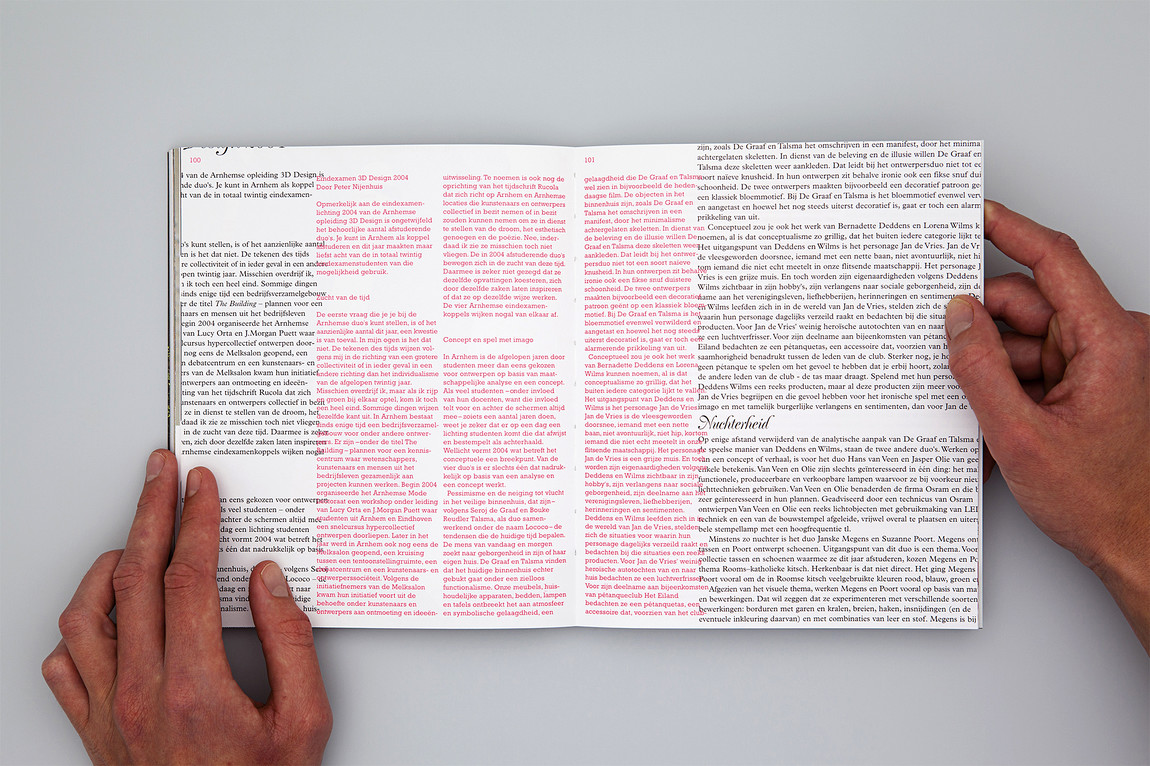 100
n van de Arnhemse opleiding 3D Design is
nde duo's. Je kunt in Arnhem als koppel
nt van de in totaal twintig eindexamen-
o's kunt stellen, is of het aanzienlijke aantal
en is het dat niet. De tekenen des tijds
re collectiviteit of in ieder geval in een andere
open twintig jaar. Misschien overdrijf ik,
n ik toch een heel eind. Sommige dingen
inds enige tijd een bedrijfsverzamelgebouw
er de titel The Building – plannen voor een
naars en mensen uit het bedrijfsleven
egin 2004 organiseerde het Arnhemse
van Lucy Orta en J.Morgan Puett waar
lcursus hypercollectief ontwerpen door-
nog eens de Melksalon geopend, een
n debatcentrum en een kunstenaars- en
rs van de Melksalon kwam hun initiatief
ontwerpers aan ontmoeting en ideeën-
ting van het tijdschrift Rucola dat zich
unstenaars en ontwerpers collectief in bezit
ze in dienst te stellen van de droom, het
daad ik zie ze misschien toch niet vliegen.
in de zucht van deze tijd. Daarmee is zeker
ven, zich door dezelfde zaken laten inspireren
rnhemse eindexamenkoppels wijken nogal
an eens gekozen voor ontwerpen
ls veel studenten – onder
achter de schermen altijd mee
cht vormt 2004 wat betreft het
s één dat nadrukkelijk op basis
Eindexamen 3D Design 2004
Door Peter Nijenhuis
Opmerkelijk aan de eindexamen-
lichting 2004 van de Arnhemse
opleiding 3D Design is ongetwijfeld
het behoorlijke aantal afstuderende
duo's. Je kunt in Arnhem als koppel
afstuderen en dit jaar maakten maar
liefst acht van de in totaal twintig
eindexamenstudenten van die
mogelijkheid gebruik.
Zucht van de tijd
De eerste vraag die je je bij de
Arnhemse duo's kunt stellen, is of het
aanzienlijke aantal dit jaar, een kwestie
is van toeval. In mijn ogen is het dat
niet. De tekenen des tijds wijzen vol-
gens mij in de richting van een grotere
collectiviteit of in ieder geval in een
andere richting dan het individualisme
van de afgelopen twintig jaar.
Misschien overdrijf ik, maar als ik rijp
en groen bij elkaar optel, kom ik toch
een heel eind. Sommige dingen wijzen
dezelfde kant uit. In Arnhem bestaat
sinds enige tijd een bedrijfsverzamel-
gebouw voor onder andere ontwer-
pers. Er zijn –onder de titel The
Building– plannen voor een kennis-
centrum waar wetenschappers,
kunstenaars en mensen uit het
bedrijfsleven gezamenlijk aan
projecten kunnen werken. Begin 2004
organiseerde het Arnhemse Mode
Biotoopsat een workshop onder leiding
van Lucy Orta en J.Morgan Puett waar
studenten uit Arnhem en Eindhoven
een snelcursus hypercollectief
ontwerpen doorliepen. Later in het
jaar werd in Arnhem ook nog eens de
Melksalon geopend, een kruising
tussen een tentoonstellingruimte, een
debatcentrum en een kunstenaars- en
ontwerperssociëteit. Volgens de
initiatiefnemers van de Melksalon
kwam hun initiatief voort uit de
behoefte onder kunstenaars en
ontwerpers aan ontmoeting en ideeën-
uitwisseling. Te noemen is ook nog de
oprichting van het tijdschrift Rucola
dat zich richt op Arnhem en Arnhemse
locaties die kunstenaars en ontwerpers
collectief in bezit nemen of in bezit
zouden kunnen nemen om ze in dienst
te stellen van de droom, het esthetisch
genoegen en de poëzie. Nee, inder-
daad ik zie ze misschien toch niet
vliegen. De in 2004 afstuderende duo's
bewegen zich in de zucht van deze tijd.
Daarmee is zeker niet gezegd dat ze
dezelfde opvattingen koesteren, zich
door dezelfde zaken laten inspireren
of dat ze op dezelfde wijze werken.
De vier Arnhemse eindexamen-
koppels wijken nogal van elkaar af.
Concept en spel met imago
In Arnhem is de afgelopen jaren door
studenten meer dan eens gekozen
voor ontwerpen op basis van maat-
schappelijke analyse en een concept.
Als veel studenten –onder invloed
van hun docenten, want die invloed
telt voor en achter de schermen altijd
mee– zoiets een aantal jaren doen,
weet je zeker dat er op een dag een
lichting studenten komt die dat afwijst
en bestempelt als achterhaald.
Wellicht vormt 2004 wat betreft het
conceptuele een breekpunt. Van de
vier duo's is er slechts één dat nadruk-
kelijk op basis van een analyse en
een concept werkt.
Pessimisme en de neiging tot vlucht
in het veilige binnenhuis, dat zijn–
volgens Seroj de Graaf en Bouke
Reudler Talsma, als duo samen-
werkend onder de naam Lococo–de
tendensen die de huidige tijd bepalen.
De mens van vandaag en morgen
zoekt naar geborgenheid in zijn of haar
eigen huis. De Graaf en Talsma vinden
dat het huidige binnenhuis echter
gebukt gaat onder een zielloos
functionalisme. Onze meubels, huis-
houdelijke apparaten, bedden, lampen
en tafels ontbreekt het aan atmosfeer
en symbolische gelaagdheid, een
101
gelaagdheid die De Graaf en Talsma
wel zien in bijvoorbeeld de heden-
daagse film. De objecten in het
binnenhuis zijn, zoals De Graaf en
Talsma het omschrijven in een
manifest, door het minimalisme
achtergelaten skeletten. In dienst van
de beleving en de illusie willen De
Graaf en Talsma deze skeletten weer
aankleden. Dat leidt bij het ontwer-
persduo niet tot een soort naïeve
knusheid. In hun ontwerpen zit behalve
ironie ook een fikse snuf duistere
schoonheid. De twee ontwerpers
maakten bijvoorbeeld een decoratief
patroon geënt op een klassiek bloem-
motief. Bij De Graaf en Talsma is het
bloemmotief evenwel verwilderd en
aangetast en hoewel het nog steeds
uiterst decoratief is, gaat er toch een
alarmerende prikkeling van uit.
Conceptueel zou je ook het werk
van Bernadette Deddens en Lorena
Wilms kunnen noemen, al is dat
conceptualisme zo grillig, dat het
buiten iedere categorie lijkt te vallen.
Het uitgangspunt van Deddens en
Wilms is het personage Jan de Vries.
Jan de Vries is de vleesgeworden
doorsnee, iemand met een nette
baan, niet avontuurlijk, niet hip, kortom
iemand die niet echt meetelt in onze
flitsende maatschappij. Het personage
Jan de Vries is een grijze muis. En toch
worden zijn eigenaardigheden volgens
Deddens en Wilms zichtbaar in zijn
hobby's, zijn verlangens naar sociale
geborgenheid, zijn deelname aan het
verenigingsleven, liefhebberijen,
herinneringen en sentimenten.
Deddens en Wilms leefden zich in in
de wereld van Jan de Vries, stelden
zich de situaties voor waarin hun
personage dagelijks verzeild raakt en
bedachten bij die situaties een reeks
producten. Voor Jan de Vries' weinig
heroïsche autotochten van en naar
huis bedachten ze een luchtverfrisser.
Voor zijn deelname aan bijeenkomsten
van pétanqueclub Het Eiland
bedachten ze een pétanquetas, een
accessoire dat, voorzien van het club-
zijn, zoals De Graaf en Talsma het omschrijven in een manifest, door het minima
achtergelaten skeletten. In dienst van de beleving en de illusie willen De Graaf en
Talsma deze skeletten weer aankleden. Dat leidt bij het ontwerpersduo niet tot ee
soort naïeve knusheid. In hun ontwerpen zit behalve ironie ook een fikse snuf dui
schoonheid. De twee ontwerpers maakten bijvoorbeeld een decoratief patroon ge
een klassiek bloemmotief. Bij De Graaf en Talsma is het bloemmotief evenwel verw
en aangetast en hoewel het nog steeds uiterst decoratief is, gaat er toch een alarm
prikkeling van uit.
Conceptueel zou je ook het werk van Bernadette Deddens en Lorena Wilms k
noemen, al is dat conceptualisme zo grillig, dat het buiten iedere categorie lijkt te
Het uitgangspunt van Deddens en Wilms is het personage Jan de Vries. Jan de Vr
de vleesgeworden doorsnee, iemand met een nette baan, niet avontuurlijk, niet hi
tom iemand die niet echt meetelt in onze flitsende maatschappij. Het personage J
Vries is een grijze muis. En toch worden zijn eigenaardigheden volgens Deddens e
Wilms zichtbaar in zijn hobby's, zijn verlangens naar sociale geborgenheid, zijn de
name aan het verenigingsleven, liefhebberijen, herinneringen en sentimenten. De
en Wilms leefden zich in in de wereld van Jan de Vries, stelden zich de situaties
waarin hun personage dagelijks verzeild raakt en bedachten bij die situa
producten. Voor Jan de Vries' weinig heroïsche autotochten van en naar
ze een luchtverfrisser. Voor zijn deelname aan bijeenkomsten van pétanq
Eiland bedachten ze een pétanquetas, een accessoire dat, voorzien van h
saamhorigheid benadrukt tussen de leden van de club. Sterker nog, je ho
geen pétanque te spelen om het gevoel te hebben dat je erbij hoort, zolan
de andere leden van de club - de tas maar draagt. Spelend met hun perso
Deddens Wilms een reeks producten, maar al deze producten zijn meer voo
Jan de Vries begrijpen en die gevoel hebben voor het ironische spel met een o
imago en met tamelijk burgerlijke verlangens en sentimenten, dan voor Jan de
Nuchterheid
Op enige afstand verwijderd van de analytische aanpak van De Graaf en Talsma e
de speelse manier van Deddens en Wilms, staan de twee andere duo's. Werken op
van een concept of verhaal, is voor het duo Hans van Veen en Jasper Olie van gee
enkele betekenis. Van Veen en Olie zijn slechts geïnteresseerd in één ding: het ma
functionele, produceerbare en verkoopbare lampen waarvoor ze bij voorkeur nieu
lichttechnieken gebruiken. Van Veen en Olie benaderden de firma Osram en die b
zeer geïnteresseerd in hun plannen. Geadviseerd door een technicus van Osram
ontwierpen Van Veen en Olie een reeks lichtobjecten met gebruikmaking van LED
techniek en een van de bouwstempel afgeleide, vrijwel overal te plaatsen en uiters
bele stempellamp met een hoogfrequentie tl.
Minstens zo nuchter is het duo Janske Megens en Suzanne Poort. Megens ont
tassen en Poort ontwerpt schoenen. Uitgangspunt van dit duo is een thema. Voor
collectie tassen en schoenen waarmee ze dit jaar afstuderen, kozen Megens en Po
thema Rooms–katholieke kitsch. Herkenbaar is dat niet direct. Het ging Megens
Poort vooral om de in Roomse kitsch veelgebruikte kleuren rood, blauw, groen e
Afgezien van het visuele thema, werken Megens en Poort vooral op basis van ma
en bewerkingen. Dat wil zeggen dat ze experimenteren met verschillende soorten
bewerkingen: borduren met garen en kralen, breien, haken, insnijdingen (en de
eventuele inkleuring daarvan) en met combinaties van leer en stof. Megens is bij